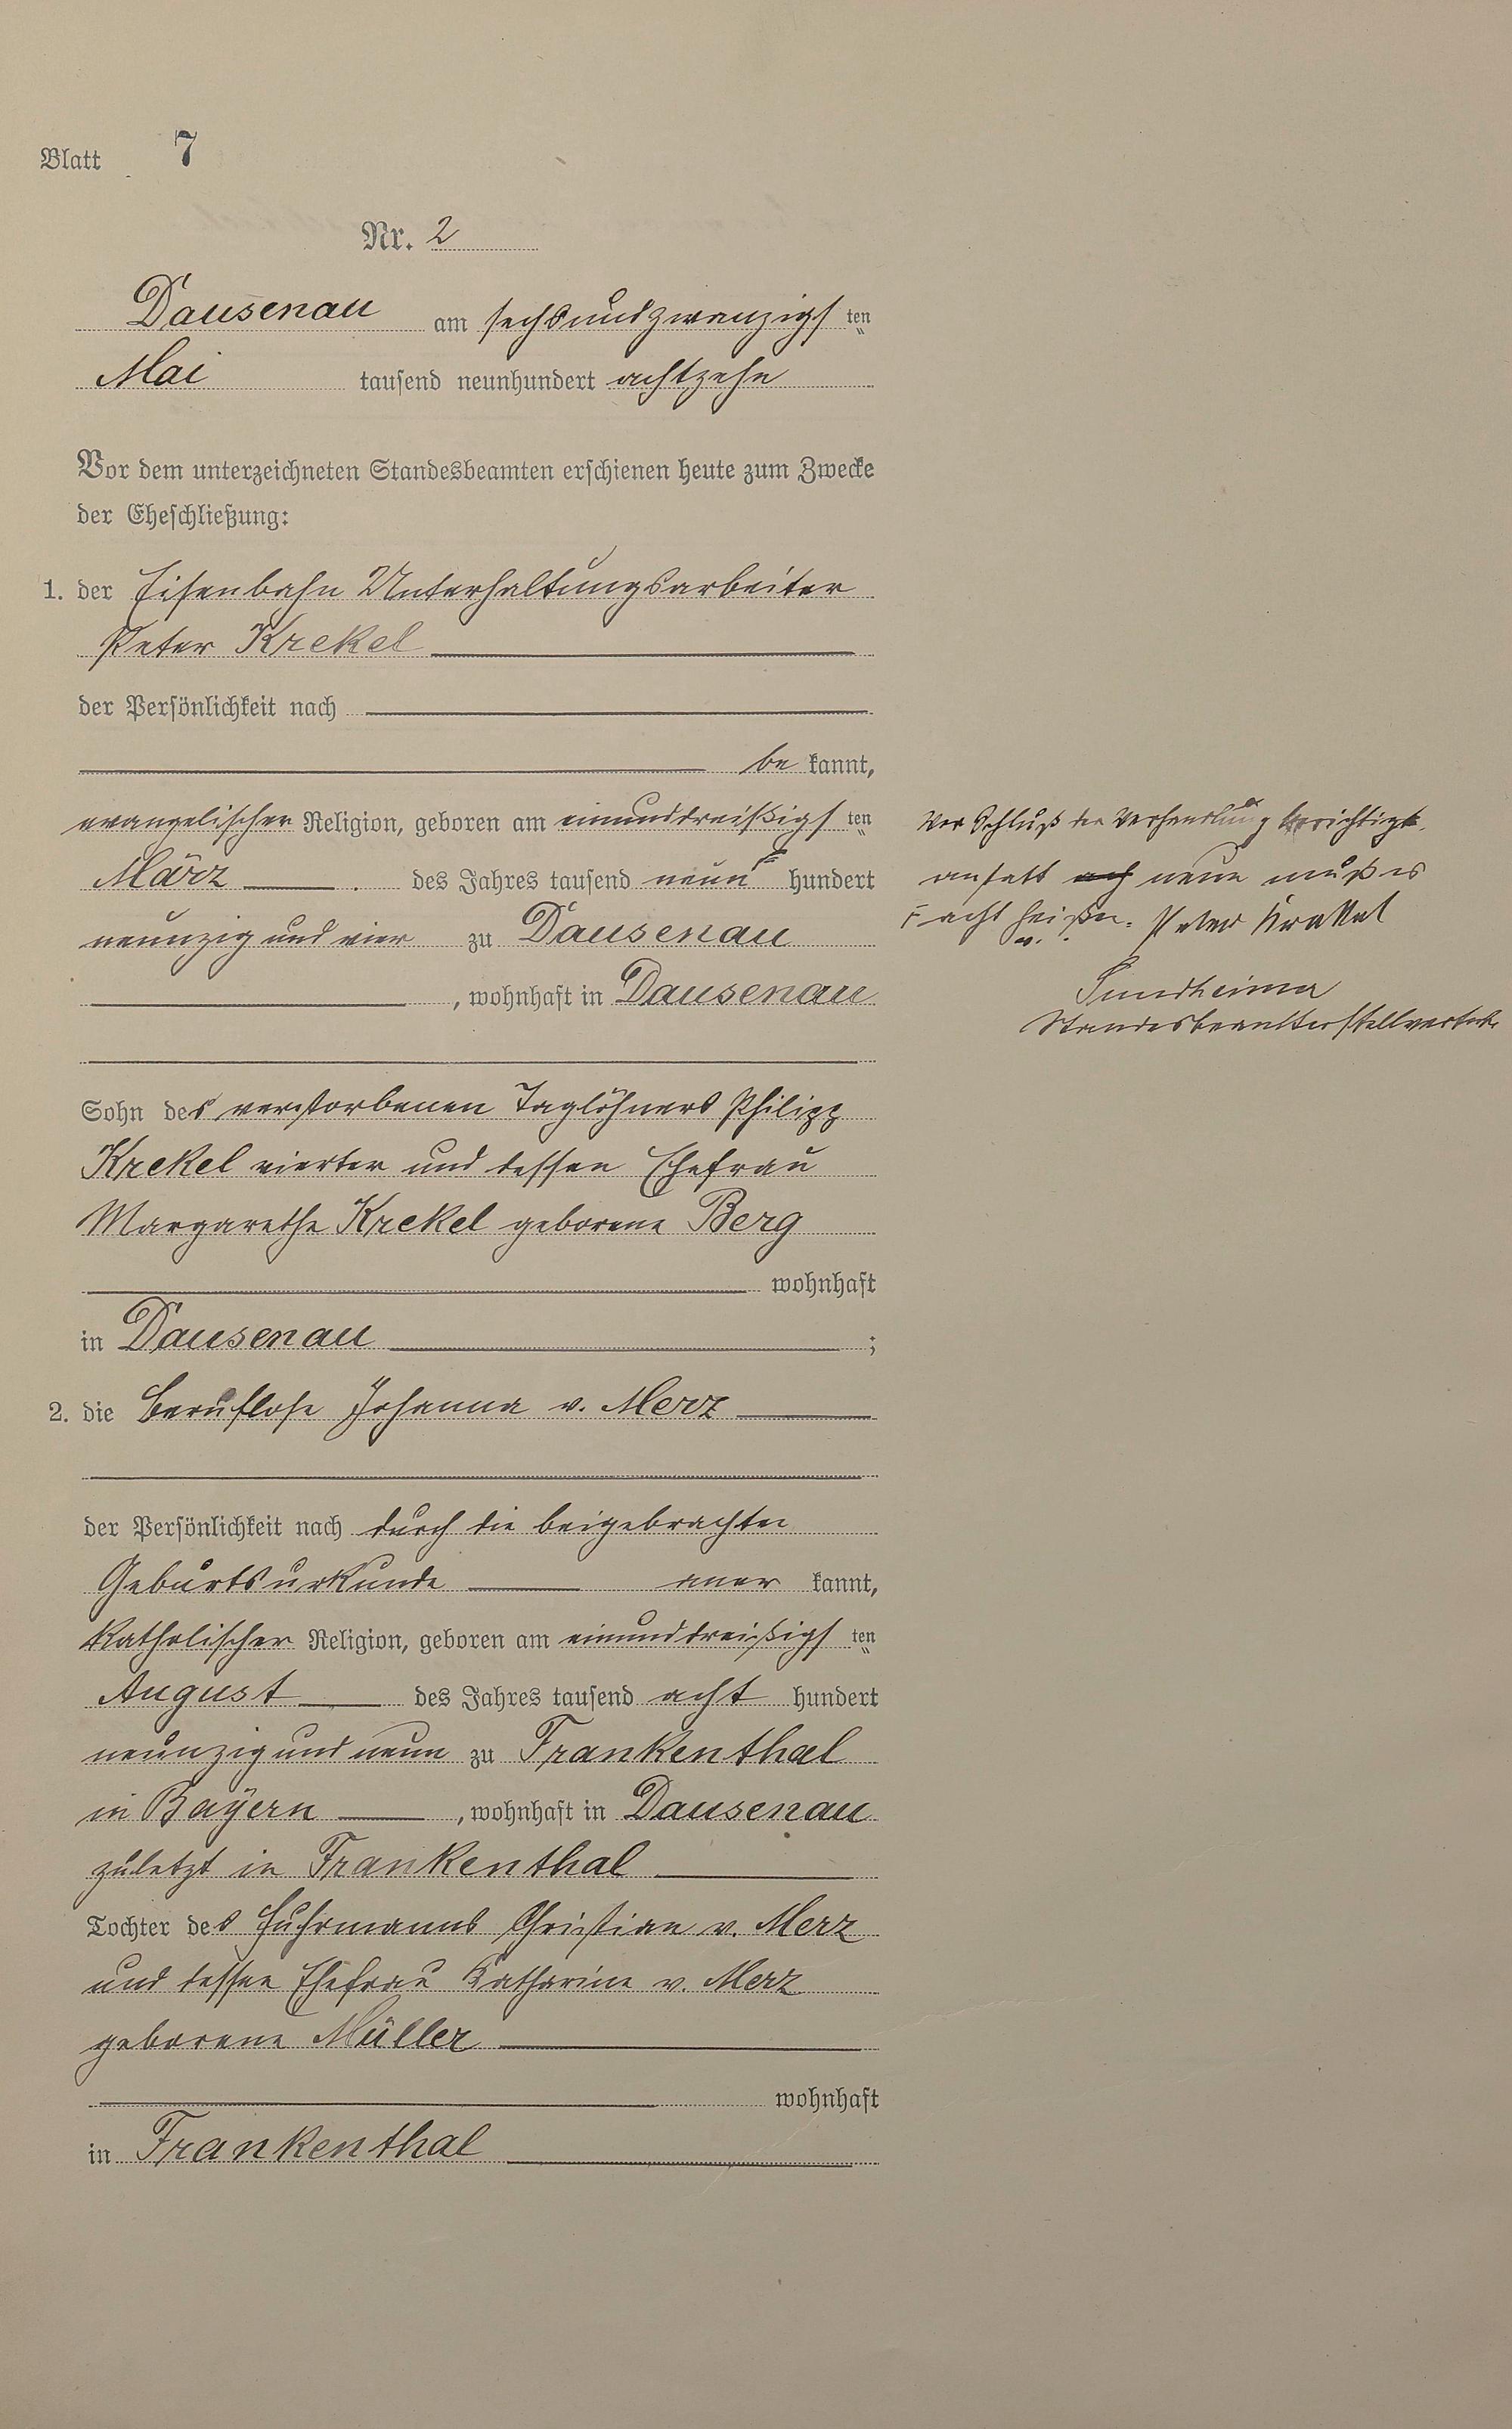 Blatt 7
Nr. 2
Dausenau am sechsundzwanzigs ten
Mai tausend neunhundert achtzehn
Vor dem unterzeichneten Standesbeamten erschienen heute zum Zwecke
der Eheschließung:
1. der Eisenbahn Unterhaltungsarbeiter
Peter Krekel
der Persönlichkeit nach
be kannt,
evangelischer Religion, geboren am einunddreißigs ten
März des Jahres tausend neun hundert
neunzig und vier zu Dausenau
, wohnhaft in Dausenau
Sohn des verstorbenen Taglöhners Philipp
Krekel vierter und dessen Ehefrau
Margarethe Krekel geborene Berg
wohnhaft
in Dausenau ;
2. die Beruflose Johanna v. Merz
der Persönlichkeit nach durch die beigebrachte
Geburtsurkunde aner kannt,
katholischer Religion, geboren am einunddreißigs ten
August des Jahres tausend acht hundert
neunzig und neun zu Frankenthal
in Bayern , wohnhaft in Dausenau
zuletzt in Frankenthal
Tochter des Fuhrmanns Christian v. Merz
und dessen Ehefrau Katharine v. Merz
geborene Müller
wohnhaft
in Frankenthal
Vor Schluß der Verhandlung berichtigt.
anstatt neun muß es
acht heißen. Peter Krekel
Sundheimer
Standesbeamterstellvertreter